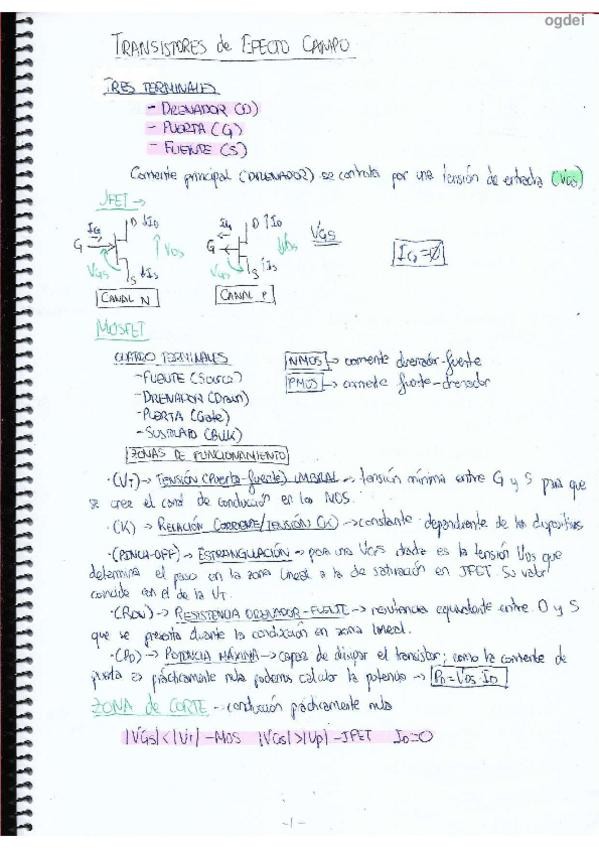 ogdei
TRANSISTORES de EFECTO CAMPO
TRES TERMINALES
- DRENADOR (D)
- PUERTA (G)
- FUENTE (S)
Corriente principal (DRENADOR) se controla por una tensión de entrada (VGS)
JFET →
IG D ↓ID G VGS VDS S ↓IS
IG D ↑ID G VGS VDS S ↑IS
VGS
IG=0
CANAL N CANAL P
MOSFET
CUATRO TERMINALES
- FUENTE (Source)
- DRENADOR (Drain)
- PUERTA (Gate)
- SUSTRATO (Bulk)
NMOS → corriente drenador-fuente
PMOS → corriente fuente-drenador
ZONAS DE FUNCIONAMIENTO
·(VT)→ TENSIÓN (Puerta-fuente) UMBRAL → tensión mínima entre G y S para que
se cree el canal de conducción en los MOS.
·(K) → RELACIÓN CORRIENTE/TENSIÓN (K) → constante dependiente de los dispositivos
·(PINCH-OFF)→ ESTRANGULACIÓN → para una VGS dada es la tensión VDS que
determina el paso en la zona lineal a la de saturación en JFET. Su valor
coincide con el de la VT.
·(RON)→ RESISTENCIA DRENADOR-FUENTE → resistencia equivalente entre D y S
que se presenta durante la conducción en zona lineal.
·(PD)→ POTENCIA MÁXIMA → capaz de disipar el transistor; como la corriente de
puerta es prácticamente nula podemos calcular la potencia → PD=VDS·ID
ZONA de CORTE - conducción prácticamente nula
|VGS|<|VT| - MOS |VGS|>|Vp| - JFET ID=0
-1-